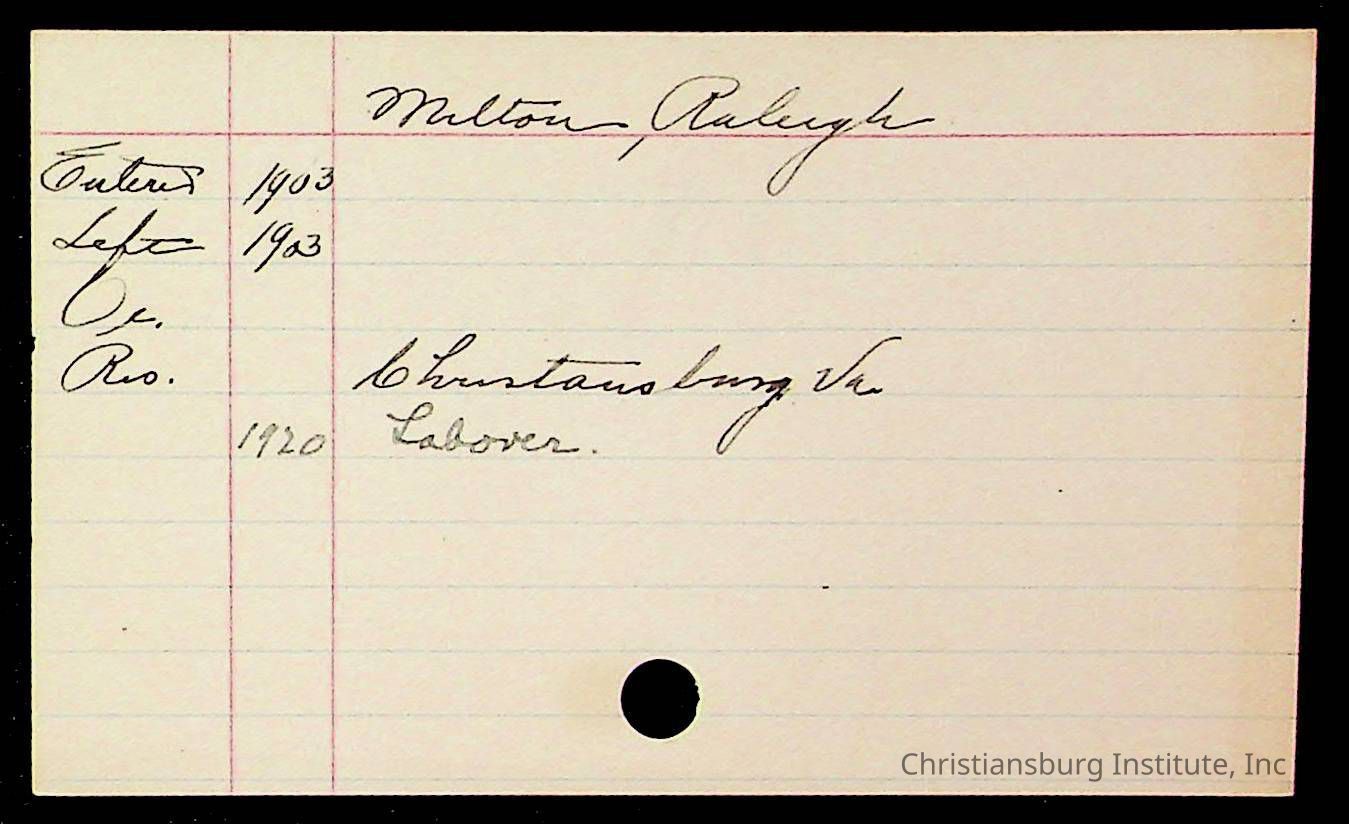 Milton, Raleigh
Entered 1903
Left 1903
Oc.
Res. Christansburg Va.
1920 Laborer.
Christiansburg Institute, Inc